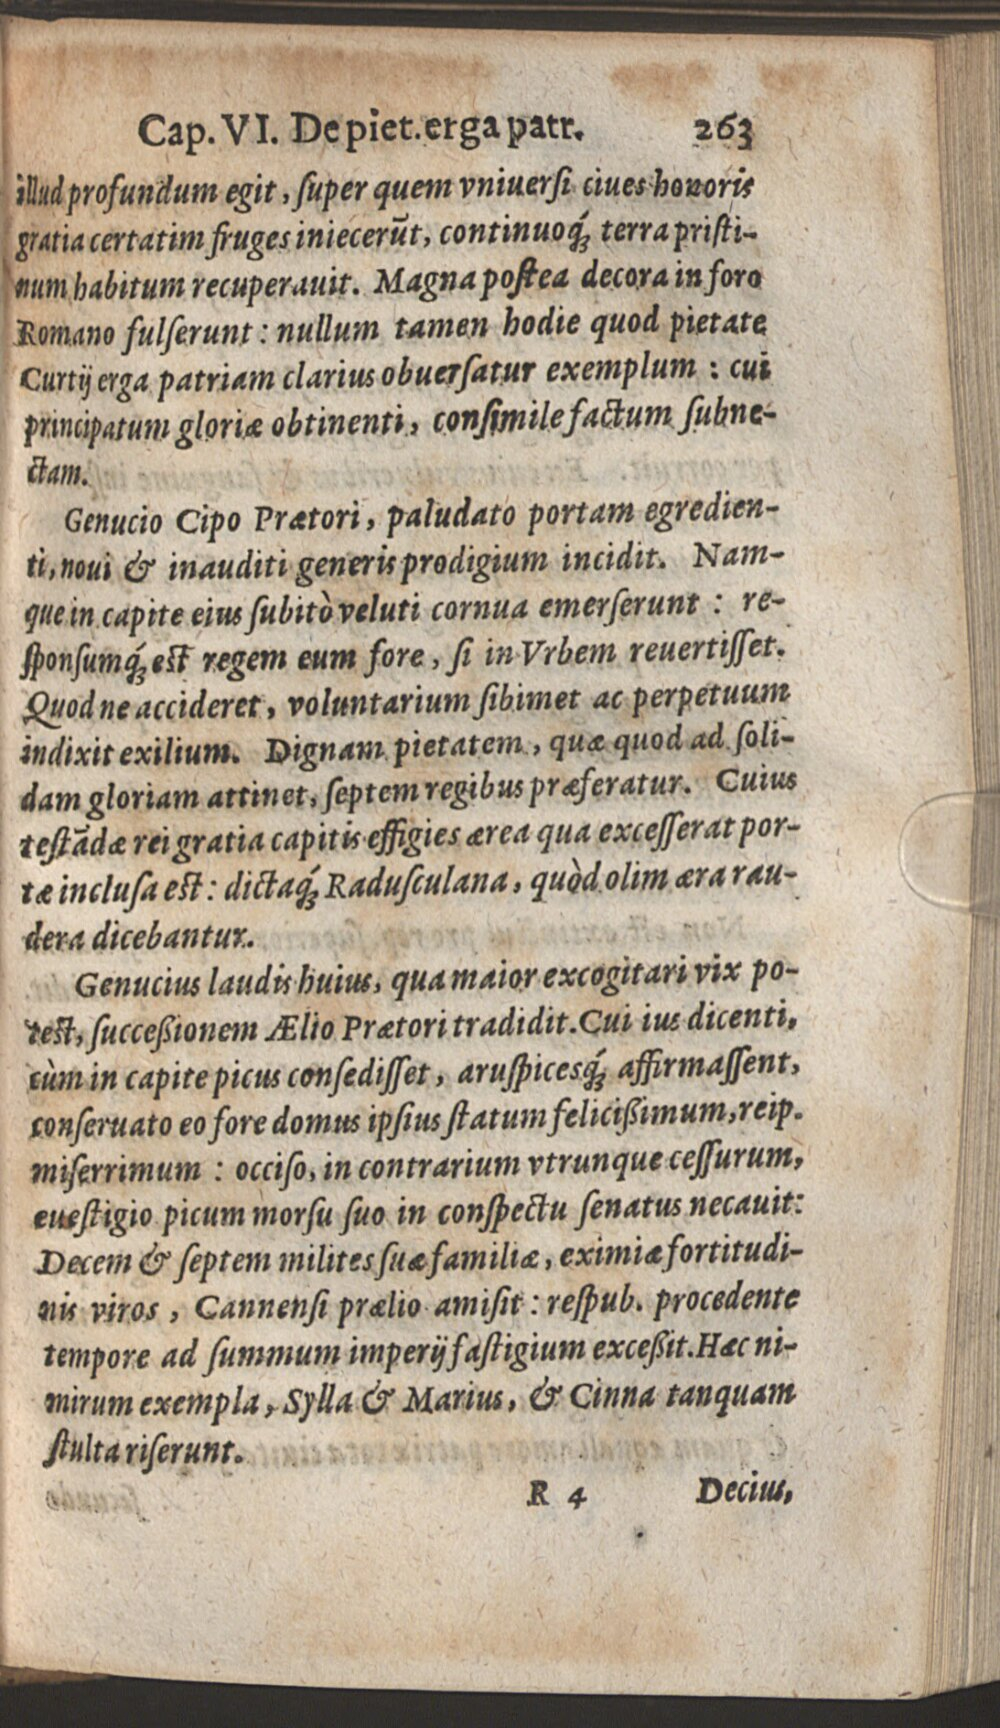 Cap. VI. De piet. erga patr. 263
illud profundum egit, ſuper quem vniuerſi ciues honoris
gratia certatim fruges iniecerũt, continuoq́; terra priſti-
num habitum recuperauit. Magna poſtea decora in foro
Romano fulſerunt: nullum tamen hodie quod pietate
Curtij erga patriam clarius obuerſatur exemplum: cui
principatum gloriæ obtinenti, conſimile factum ſubne-
ctam.
Genucio Cipo Prætori, paludato portam egredien-
ti, noui & inauditi generis prodigium incidit. Nam-
que in capite eius ſubitò veluti cornua emerſerunt: re-
ſponſumq́; eſt regem eum fore, ſi in Vrbem reuertiſſet.
Quod ne accideret, voluntarium ſibimet ac perpetuum
indixit exilium. Dignam pietatem, quæ quod ad ſoli-
dam gloriam attinet, ſeptem regibus præferatur. Cuius
teſtãdæ rei gratia capitis effigies ærea qua exceſſerat por-
tæ incluſa eſt: dictaq́; Raduſculana, quòd olim æra rau-
dera dicebantur.
Genucius laudis huius, qua maior excogitari vix po-
teſt, ſucceßionem Ælio Prætori tradidit. Cui ius dicenti,
cùm in capite picus conſediſſet, aruſpicesq́; affirmaſſent,
conſeruato eo fore domus ipſius ſtatum felicißimum, reip.
miſerrimum: occiſo, in contrarium vtrunque ceſſurum,
eueſtigio picum morſu ſuo in conſpectu ſenatus necauit:
Decem & ſeptem milites ſuæ familiæ, eximiæ fortitudi-
nis viros, Cannenſi prælio amiſit: reſpub. procedente
tempore ad ſummum imperij faſtigium exceßit. Hæc ni-
mirum exempla, Sylla & Marius, & Cinna tanquam
ſtulta riſerunt.
R 4 Decius,